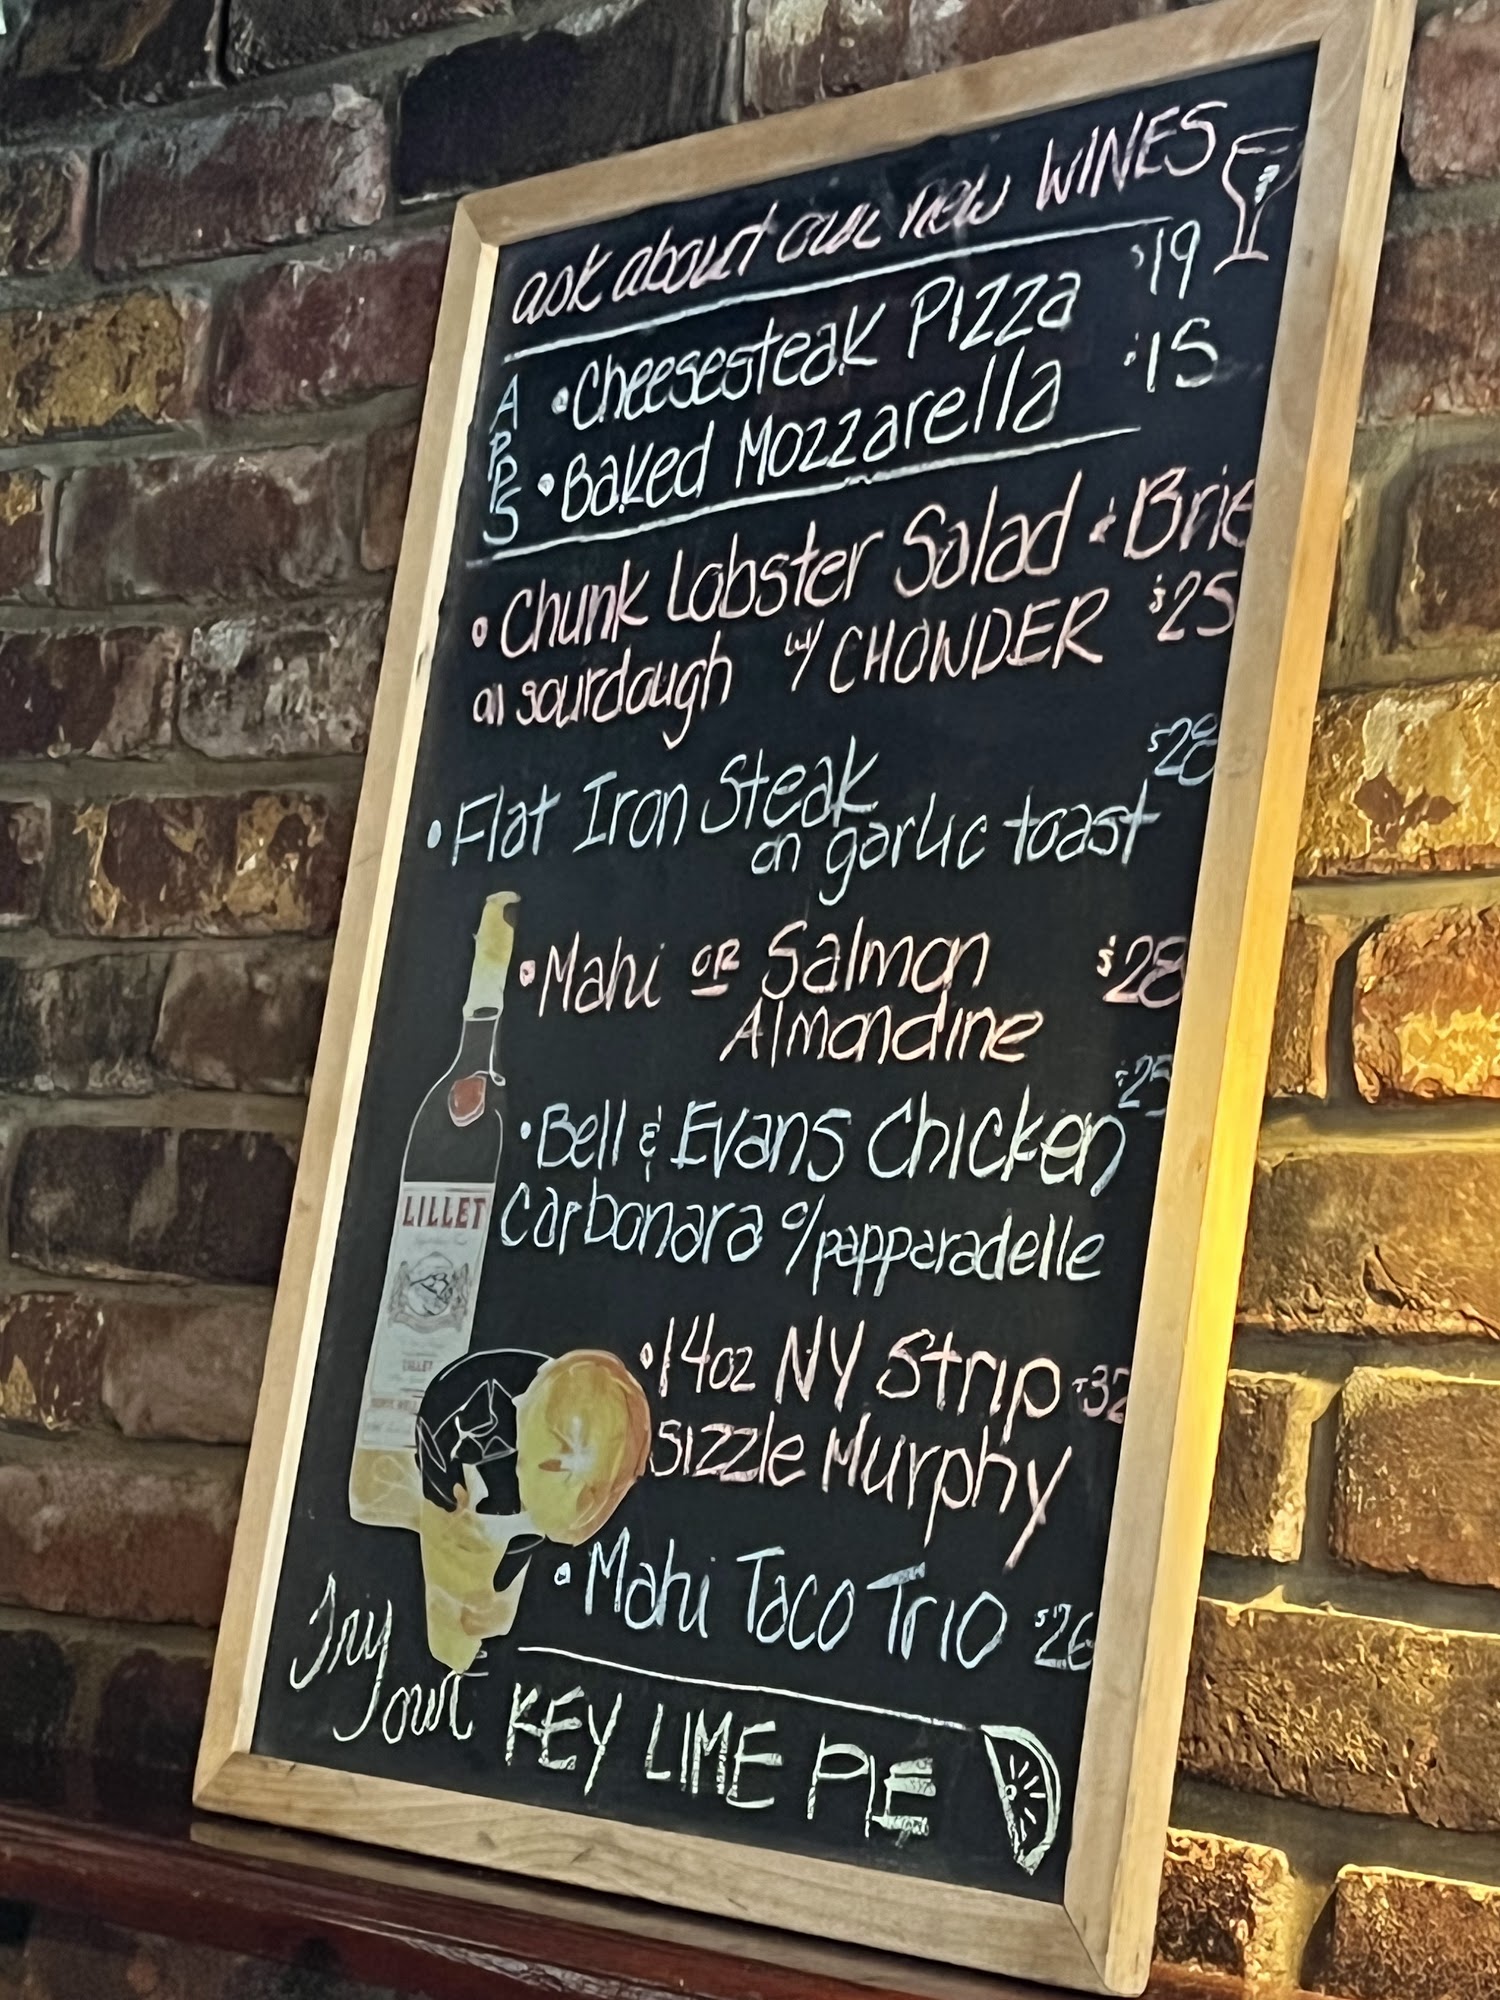 ask about our new WINES
APPS
• Cheesesteak Pizza $19
• Baked Mozzarella $15
• Chunk Lobster Salad & Brie
on sourdough w/ CHOWDER $25
• Flat Iron Steak $28
on garlic toast
• Mahi OR Salmon $28
Almandine
• Bell & Evans Chicken $25
Carbonara o/papparadelle
LILLET
LILLET
• 14oz NY Strip $32
Sizzle Murphy
• Mahi Taco Trio $26
Try
our KEY LIME PIE